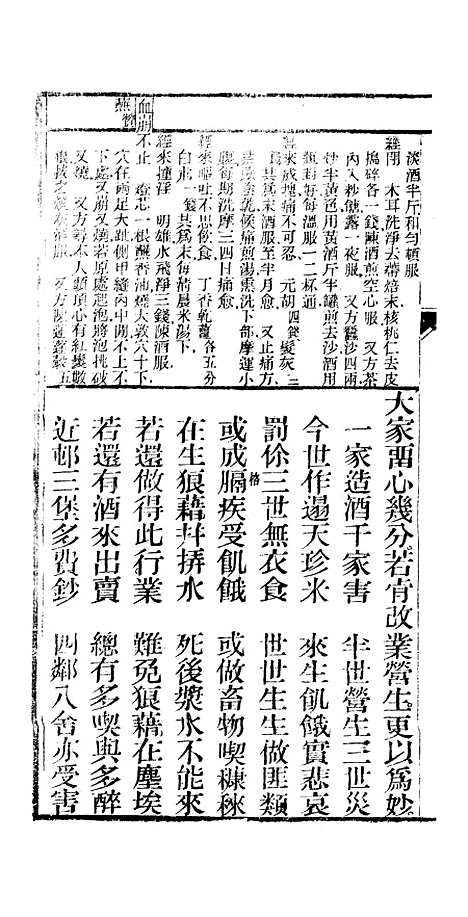 淡酒半斤和勻頓服
經閉　木耳洗淨去蒂焙末核桃仁去皮
搗碎各一錢陳酒煎空心服　又方茶
內入秒糖露一夜服　又方蠶沙四兩
炒半黃色用黃酒半斤半罐煎去沙酒用
瓶封好每溫服一二杯通
經來成塊痛不可忍　元胡四錢髮灰三
錢共為末酒服至半月愈　又止痛方
腹每期洗摩三四日痛愈
經來嘔吐不思飲食　丁香乾薑各五分
白朮一錢共為末每清晨米湯下
經來撞淫　明雄水飛淨三錢陳酒服
血崩不止　燈芯一根醮香油燒大敦穴十下
穴在兩足大趾側甲縫內中間不上不
下處又崩又燒若原處起泡將泡挑破
又燒　又方尋本人頭頂心有紅髮數
大家畱心幾分若肯改業營生更以爲妙
一家造酒千家害　半世營生三世災
今世作逷天珍米　來生飢餓實悲哀
罰你三世無衣食　世世生生做匪類
或成膈疾受飢餓　或做畜物喫糠秣
在生狼藉幷拚水　死後漿水不能來
若還做得此行業　難免狼藉在塵埃
若還有酒來出賣　總有多喫與多醉
近邨三堡多費鈔　四鄰八舍亦受害